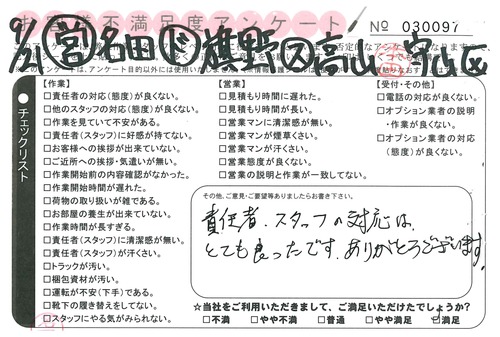 お客様不満足度アンケート
№ 030097
9/21 営 名田
【作業】
□責任者の対応(態度)が良くない。
□他のスタッフの対応(態度)が良くない。
□作業を見ていて不安がある。
□責任者(スタッフ)に好感が持てない。
□お客様への挨拶が出来ていない。
□ご近所への挨拶・気遣いが無い。
□作業開始前の内容確認がなかった。
□作業開始時間が遅れた。
□荷物の取り扱いが雑である。
□お部屋の養生が出来ていない。
□作業時間が長すぎる。
□責任者(スタッフ)に清潔感が無い。
□責任者(スタッフ)が汗さい。
□トラックが汚い。
□梱包資材が汚い。
□運転が不安(下手)である。
□靴下の履き替えをしてない。
□スタッフにやる気がみられない。
【営業】
□見積もり時間に遅れた。
□見積もり時間が長い。
□営業マンに清潔感が無い。
□営業マンが煙草くさい。
□営業マンが汗さい。
□営業態度が良くない。
□営業の説明と作業が一致してない。
【受付・その他】
□電話の対応が良くない。
□オプション業者の説明
・作業が良くない。
□オプション業者の対応
(態度)が良くない。
●チェックリスト
その他、ご意見・ご要望等ありましたらお書き下さい。
責任者、スタッフの対応は、
とても良ったです。ありがとうございます。
☆当社をご利用いただきまして、ご満足いただけたでしょうか?
□不満 □やや不満 □普通 □やや満足 ☑満足